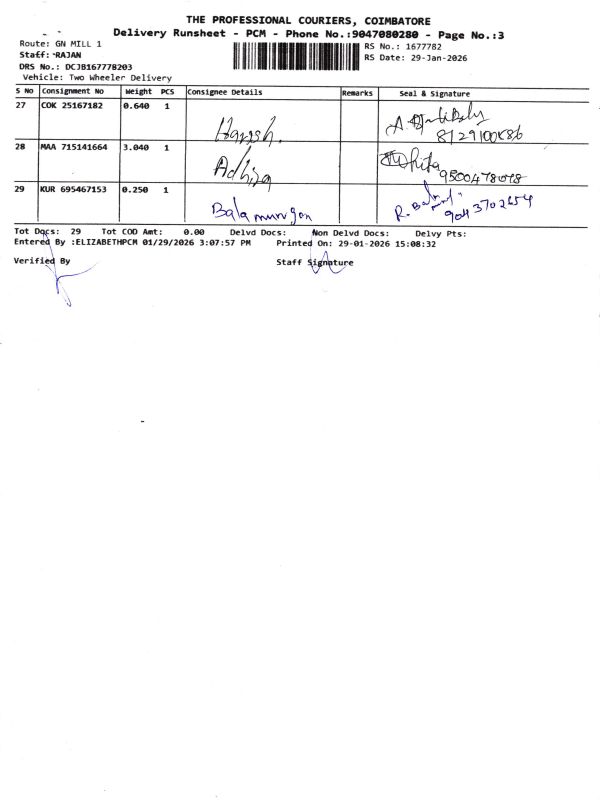 THE PROFESSIONAL COURIERS, COIMBATORE
Delivery Runsheet - PCM - Phone No.:9047080280 - Page No.:3
Route: GN MILL 1
RS No.: 1677782
Staff: RAJAN
RS Date: 29-Jan-2026
DRS No.: DCJB167778203
Vehicle: Two Wheeler Delivery
S No Consignment No Weight PCS Consignee Details Remarks Seal & Signature
27 COK 25167182 0.640 1 Harish.
28 MAA 715141664 3.040 1 Adhira
29 KUR 695467153 0.250 1 Balamurugan
Tot Docs: 29 Tot COD Amt: 0.00 Delvd Docs: Non Delvd Docs: Delvy Pts:
Entered By :ELIZABETHPCM 01/29/2026 3:07:57 PM Printed On: 29-01-2026 15:08:32
Verified By Staff Signature